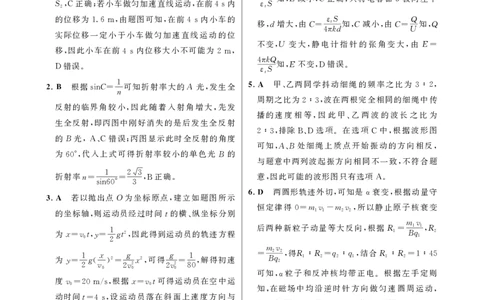 S₁,C正确;若小车做匀加速直线运动,在前4 s内
的位移为1.6 m,由题图可知,在前4 s内小车的
实际位移一定小于小车做匀加速直线运动的位
移,因此小车在前4 s内位移大小不可能为2 m,
D错误。
2. B 根据sinC=1/n可知折射率大的A光,发生全
反射的临界角较小,因此随着入射角增大,先发
生全反射,即丙图中刚好消失的是后发生全反射
的B光,A、C错误;丙图显示此时全反射的角度
为60°,代入上式可得折射率较小的单色光B的
折射率n=1/sin60°=2√3/3,B正确。
3. A 若以抛出点O为坐标原点,建立如题图所示
的坐标轴,则运动员经过时间t的横、纵坐标分别
为x=v₀t,y=1/2gt²,因此得到运动员的轨迹方程
为y=1/2g(x/v₀)²=g/2v₀²x²,可得g/2v₀²=1/80,解得初速
度v₀=20 m/s,根据x=v₀t可得运动员在空中运
动时间t=4 s,设运动员落在斜面上速度方向与
移,d增大,由C=εᵣS/4πkd知,C减小,由C=Q/U知,Q
不变,U变大,静电计指针的张角变大,由E=
4πkQ/εᵣS知,E不变,D错误。
5. A 甲、乙两同学抖动细绳的频率之比为3∶2,
周期之比为2∶3,波在两根完全相同的细绳中传
播的速度相等,因此甲、乙两波的波长之比为
2∶3,排除B、D选项。在选项C中,根据波形图
可知,A、B处细绳上质点开始振动的方向相反,
与题意中两列波起振方向相同不一致,不符合题
意,因此可能的波形图只有选项A。
6. D 两圆形轨迹外切,可知是α衰变,根据动量守
恒定律得0=m₁v₁-m₂v₂,所以静止原子核衰变
后两种新粒子动量等大反向,根据R₁=m₁v₁/Bq₁,R₂
=m₂v₂/Bq₂,得R₁∶R₂=q₂∶q₁,结合R₁∶R₂=1∶45
可知,α粒子和反冲核均带正电。根据左手定则
知,在磁场中均沿逆时针方向做匀速圆周运动,